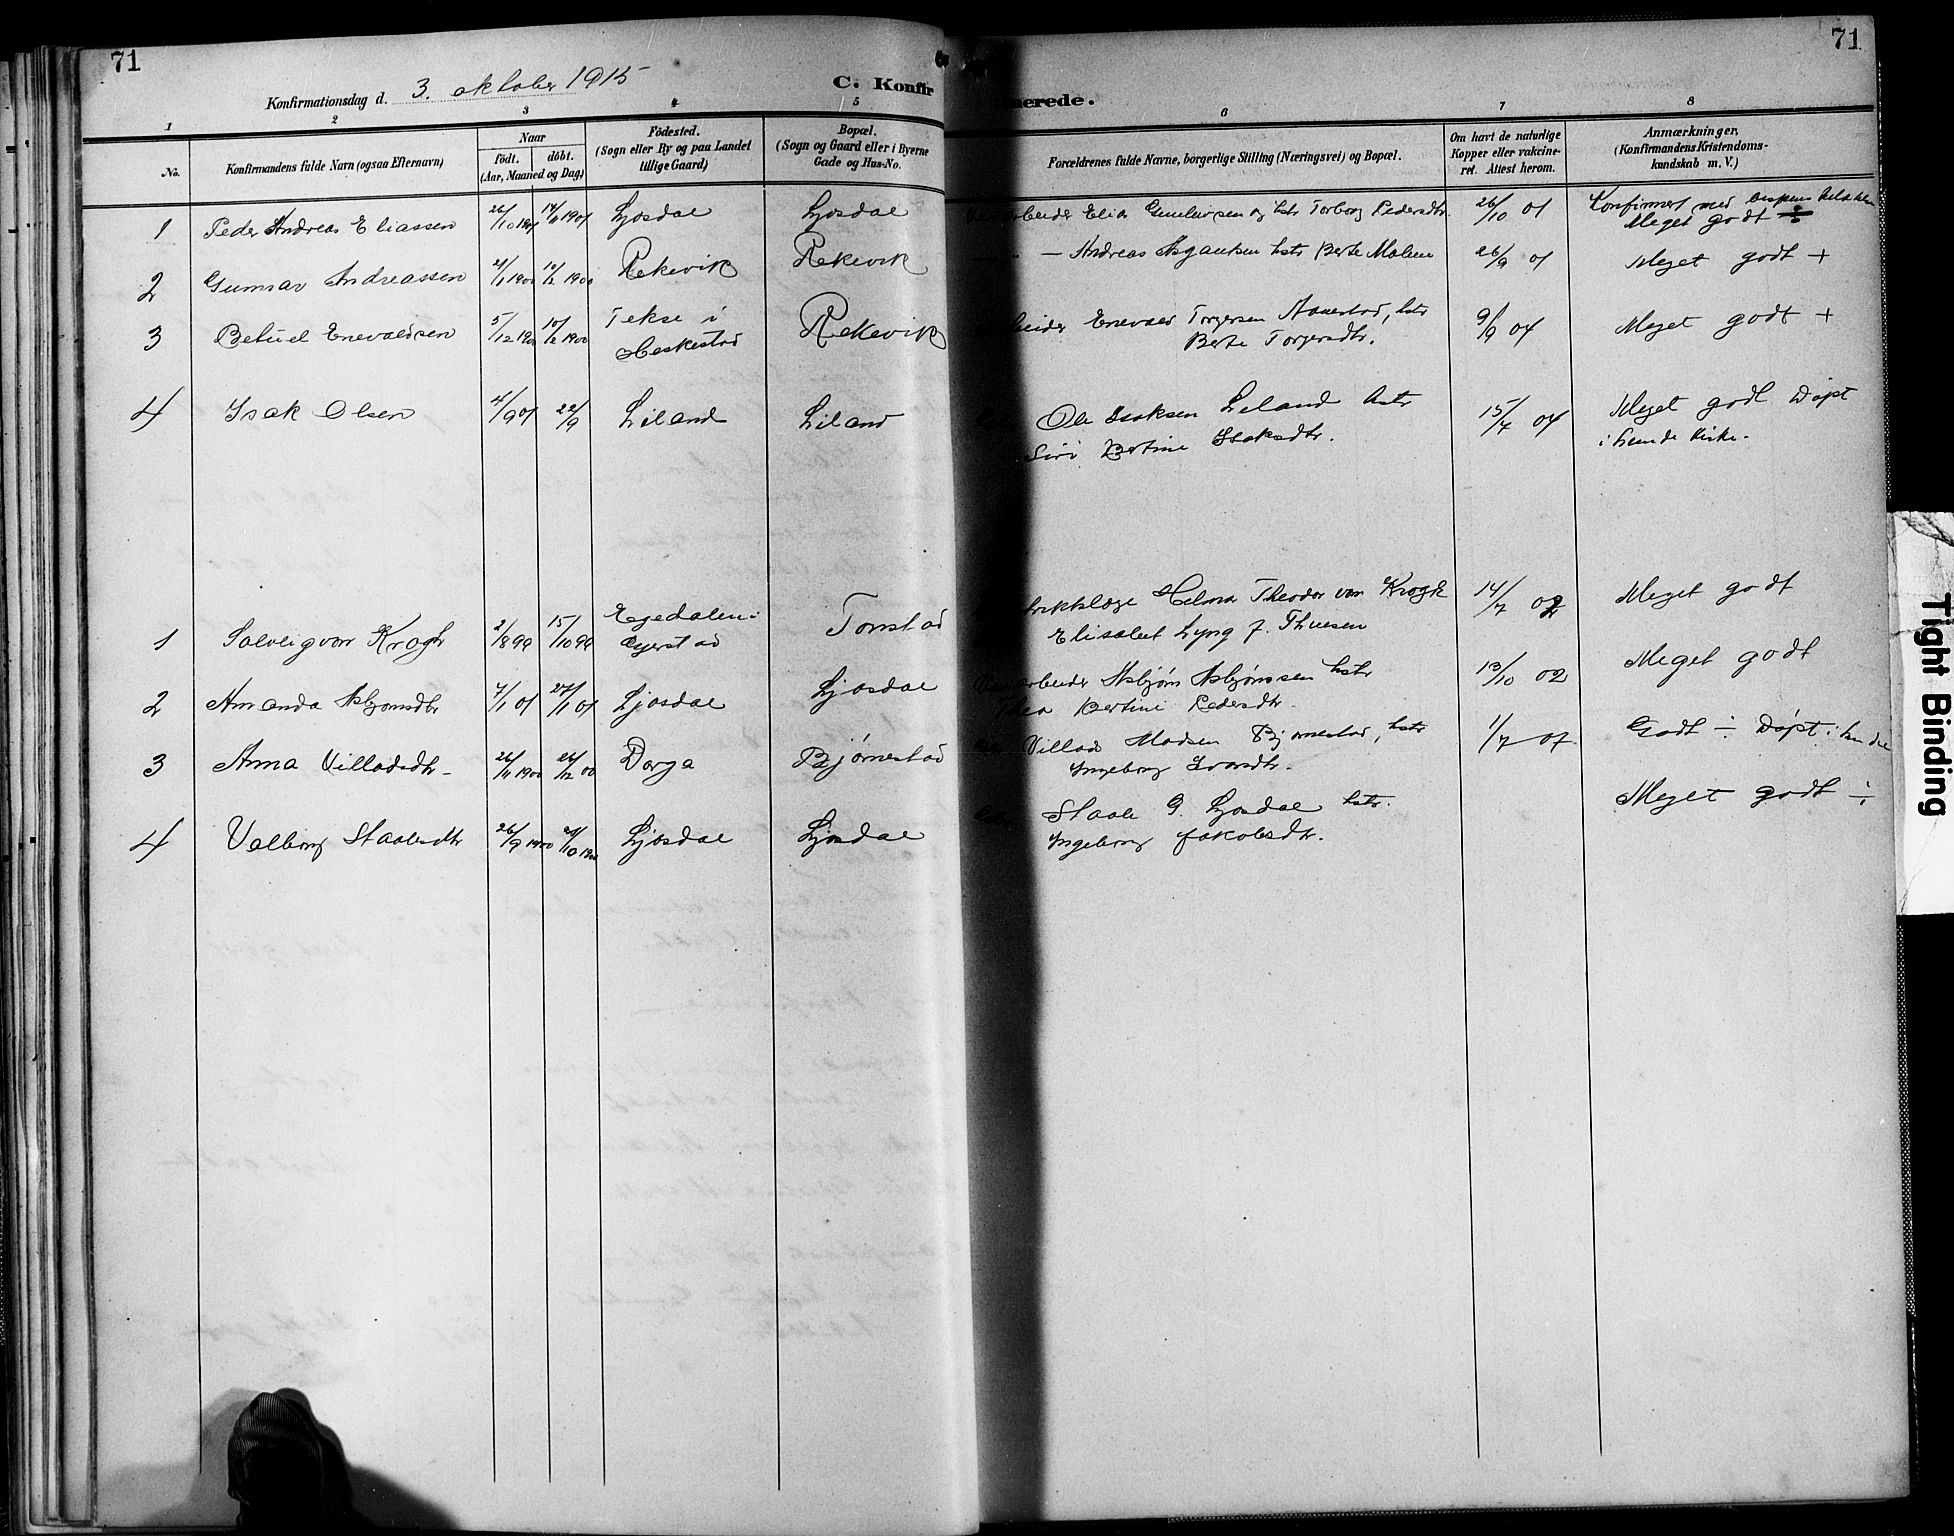 71
71
Konfirmationsdag d. 3. oktober 1915
C. Konfir
merede.
1 2 3 4 5 6 7 8
No.
Konfirmandens fulde Navn (ogsaa Efternavn)
Naar
født. døbt.
(Aar, Maaned og Dag)
Fødested.
(Sogn eller By og paa Landet
tillige Gaard)
Bopæl.
(Sogn og Gaard eller i Byerne
Gade og Hus-No.
Forældrenes fulde Navne, borgerlige Stilling (Næringsvei) og Bopæl.
Om havt de naturlige
Kopper eller vakcine-
ret. Attest herom.
Anmærkninger,
(Konfirmandens Kristendoms-
kundskab m. V.)
1 Peder Andreas Eliassen 26/10 1901 14/11 1901 Ljosdal Ljosdal arbeider Elias Gunleivsen og hstr Torborg Pedersdtr. 26/10 01 Konfirmert med
Meget godt ÷
2 Gunnar Andreassen 1900 1900 Rekevik Rekevik — Andreas Asgautsen hstr Berte Malene 26/9 01 Meget godt +
3 Betuel Enevaldsen 5/12 1900 1900 Tekse i
Heskestad Rekevik beider Enevald Torgersen Aauestad, hstr
Berte Torgersdtr. 9/9 04 Meget godt +
4 Isak Olsen 4/9 01 22/9 Liland Liland Ole Isaksen Liland hstr
Siri Bertine Isaksdtr. 15/7 04 Meget godt Døpt
i kirke.
1 Solveig von Krogh 2/8 99 15/10 99 Egedalen i
Gjerstad Tonstad triktslæge Helmer Theodor von Krogh
Elisabet Lyng f. Thuesen 14/7 02 Meget godt
2 Amanda Asbjørnsdtr 7/1 01 27/1 01 Ljosdal Ljosdal arbeider Asbjørn Asbjørnssen hstr
Thea Bertine Pedersdtr. 13/10 02 Meget godt
3 Anna Villadsdtr. 26/11 1900 26/12 00 Dorga Bjørnestad Villads Madsen Bjørnestad, hstr
Ingeborg Ivarsdtr. 1/7 07 Godt ÷ Døpt i
4 Valborg Staalesdtr 26/9 1900 1900 Ljosdal Ljosdal Staale G. Ljosdal hstr.
Ingeborg Jakobsdtr. Meget godt ÷
Tight Binding